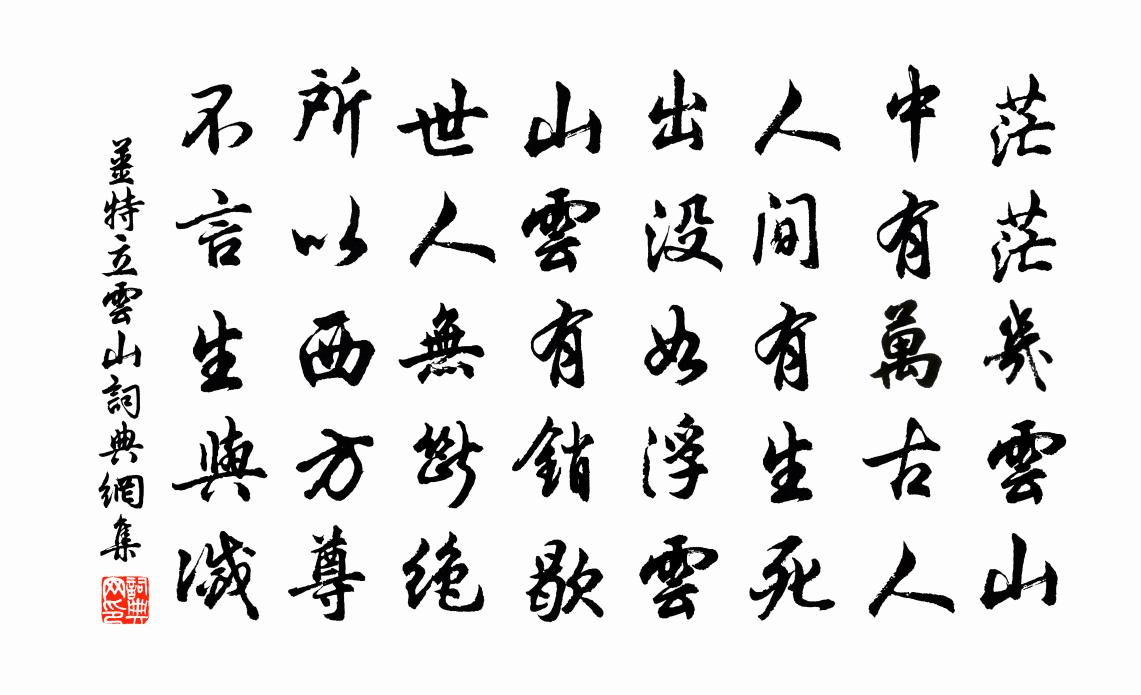 茫茫幾雲山
中有萬古人
人間有生死
出没如浮雲
山雲有銷歇
世人無斷絶
所以西方尊
不言生與滅
薑特立雲山詞典網集
詞典网印